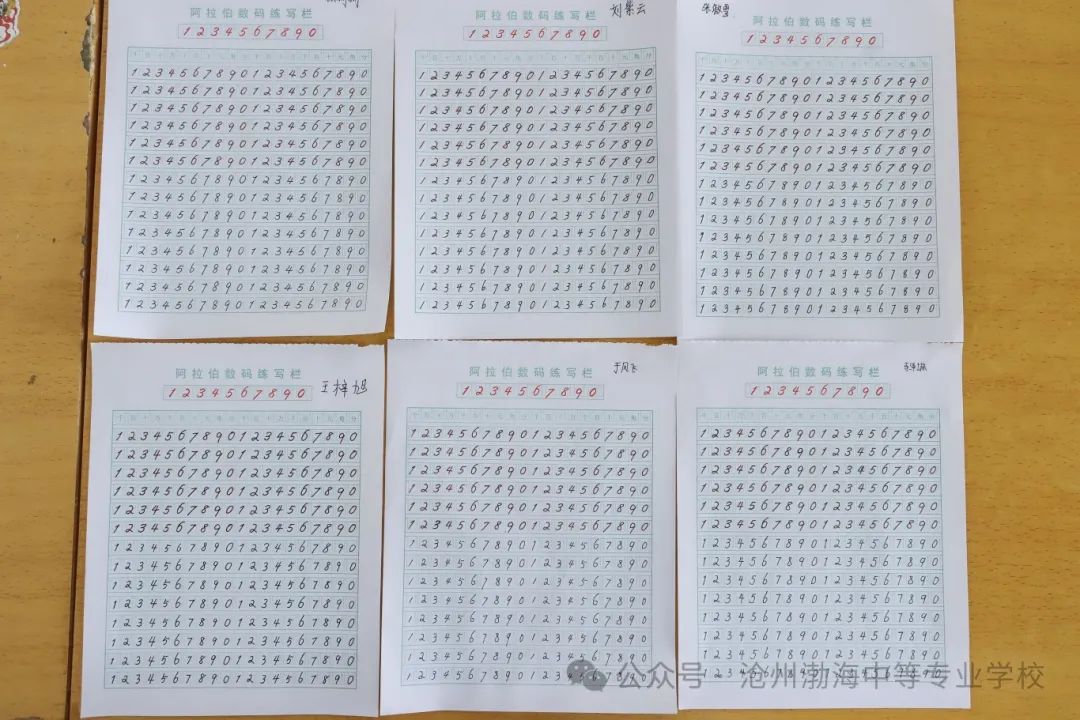 阿拉伯数码练写栏
1234567890
12345678901234567890
12345678901234567890
12345678901234567890
12345678901234567890
12345678901234567890
12345678901234567890
12345678901234567890
12345678901234567890
12345678901234567890
12345678901234567890
12345678901234567890
12345678901234567890
12345678901234567890
12345678901234567890
阿拉伯数码练写栏
1234567890
12345678901234567890
12345678901234567890
12345678901234567890
12345678901234567890
12345678901234567890
12345678901234567890
12345678901234567890
12345678901234567890
12345678901234567890
12345678901234567890
12345678901234567890
12345678901234567890
12345678901234567890
12345678901234567890
阿拉伯数码练写栏
1234567890
12345678901234567890
12345678901234567890
12345678901234567890
12345678901234567890
12345678901234567890
12345678901234567890
12345678901234567890
12345678901234567890
12345678901234567890
12345678901234567890
12345678901234567890
12345678901234567890
12345678901234567890
12345678901234567890
阿拉伯数码练写栏
王梓旭
1234567890
12345678901234567890
12345678901234567890
12345678901234567890
12345678901234567890
12345678901234567890
12345678901234567890
12345678901234567890
12345678901234567890
12345678901234567890
12345678901234567890
12345678901234567890
12345678901234567890
12345678901234567890
12345678901234567890
阿拉伯数码练写栏
1234567890
12345678901234567890
12345678901234567890
12345678901234567890
12345678901234567890
12345678901234567890
12345678901234567890
12345678901234567890
12345678901234567890
12345678901234567890
12345678901234567890
12345678901234567890
12345678901234567890
12345678901234567890
12345678901234567890
阿拉伯数码练写栏
1234567890
12345678901234567890
12345678901234567890
12345678901234567890
12345678901234567890
12345678901234567890
12345678901234567890
12345678901234567890
12345678901234567890
12345678901234567890
12345678901234567890
12345678901234567890
12345678901234567890
12345678901234567890
12345678901234567890
公众号 · 沧州渤海中等专业学校